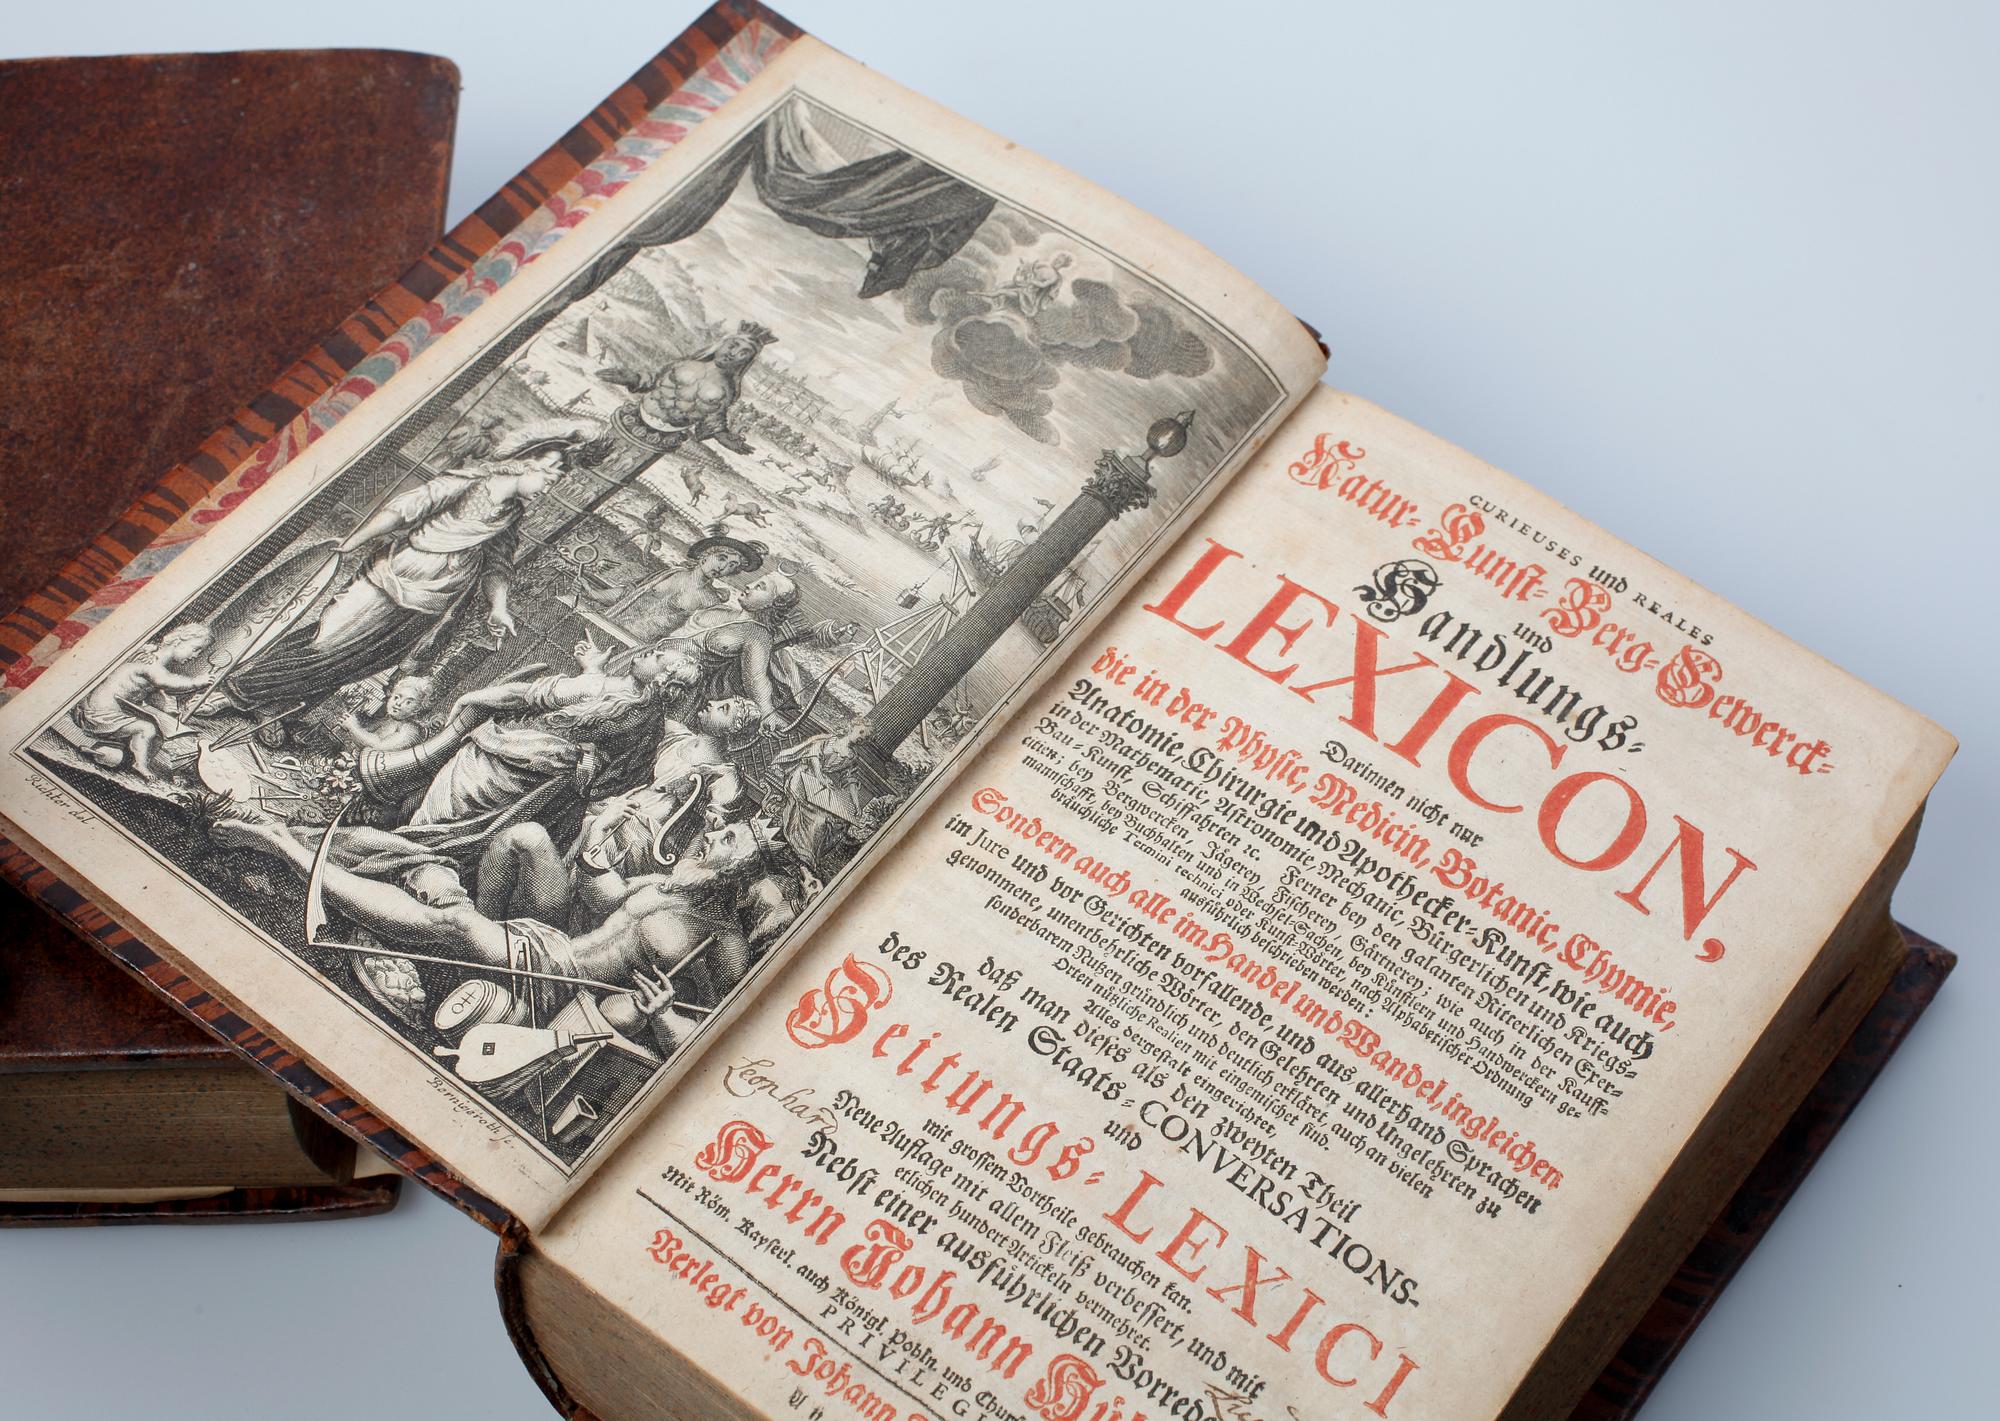 Richter del.
Bernigeroth sc.
CURIEUSES und REALES
Natur- Kunst- Berg- Gewerck-
und
Handlungs-
LEXICON,
Darinnen nicht nur
die in der Physic, Medicin, Botanic, Chymie,
Anatomie, Chirurgie und Apothecker-Kunst, wie auch
in der Mathematic, Astronomie, Mechanic, Bürgerlichen und Kriegs-
Bau-Kunst, Schiffahrten ꝛc. Ferner bey den galanten Ritterlichen Exer-
citien; bey Bergwercken, Jägerey, Fischerey, Gärtnerey; wie auch in der Kauff-
mannschafft, bey Buchhalten und in Wechsel-Sachen, bey Künstlern und Handwerckern ge-
bräuchliche Termini technici oder Kunst-Wörter, nach Alphabetischer Ordnung
ausführlich beschrieben werden:
Sondern auch alle im Handel und Wandel, ingleichen
im Jure und vor Gerichten vorfallende, und aus allerhand Sprachen
genommene, unentbehrliche Wörter, den Gelehrten und Ungelehrten zu
sonderbaren Nutzen gründlich und deutlich erkläret, auch an vielen
Orten nützliche Realien mit eingemischet sind.
Alles dergestalt eingerichtet,
daß man dieses als den zweyten Theil
des Realen Staats- CONVERSATIONS-
und
Zeitungs- LEXICI
mit grossem Vortheile gebrauchen kan.
Neue Auflage mit allem Fleiß verbessert, und mit
etlichen hundert Artickeln vermehret.
Nebst einer ausführlichen Vorrede
Herrn Johann
Leonhard
Mit Röm. Kayserl. auch Königl. Pohln. und
PRIVILEGI
Verlegt von Johann